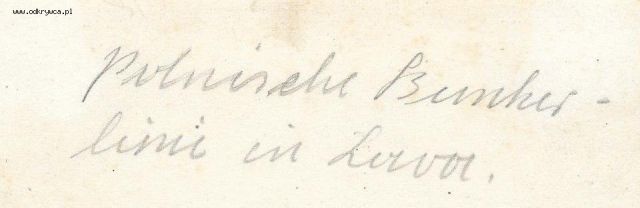 www.odkrywca.pl
Polnische Bunker-
linie in